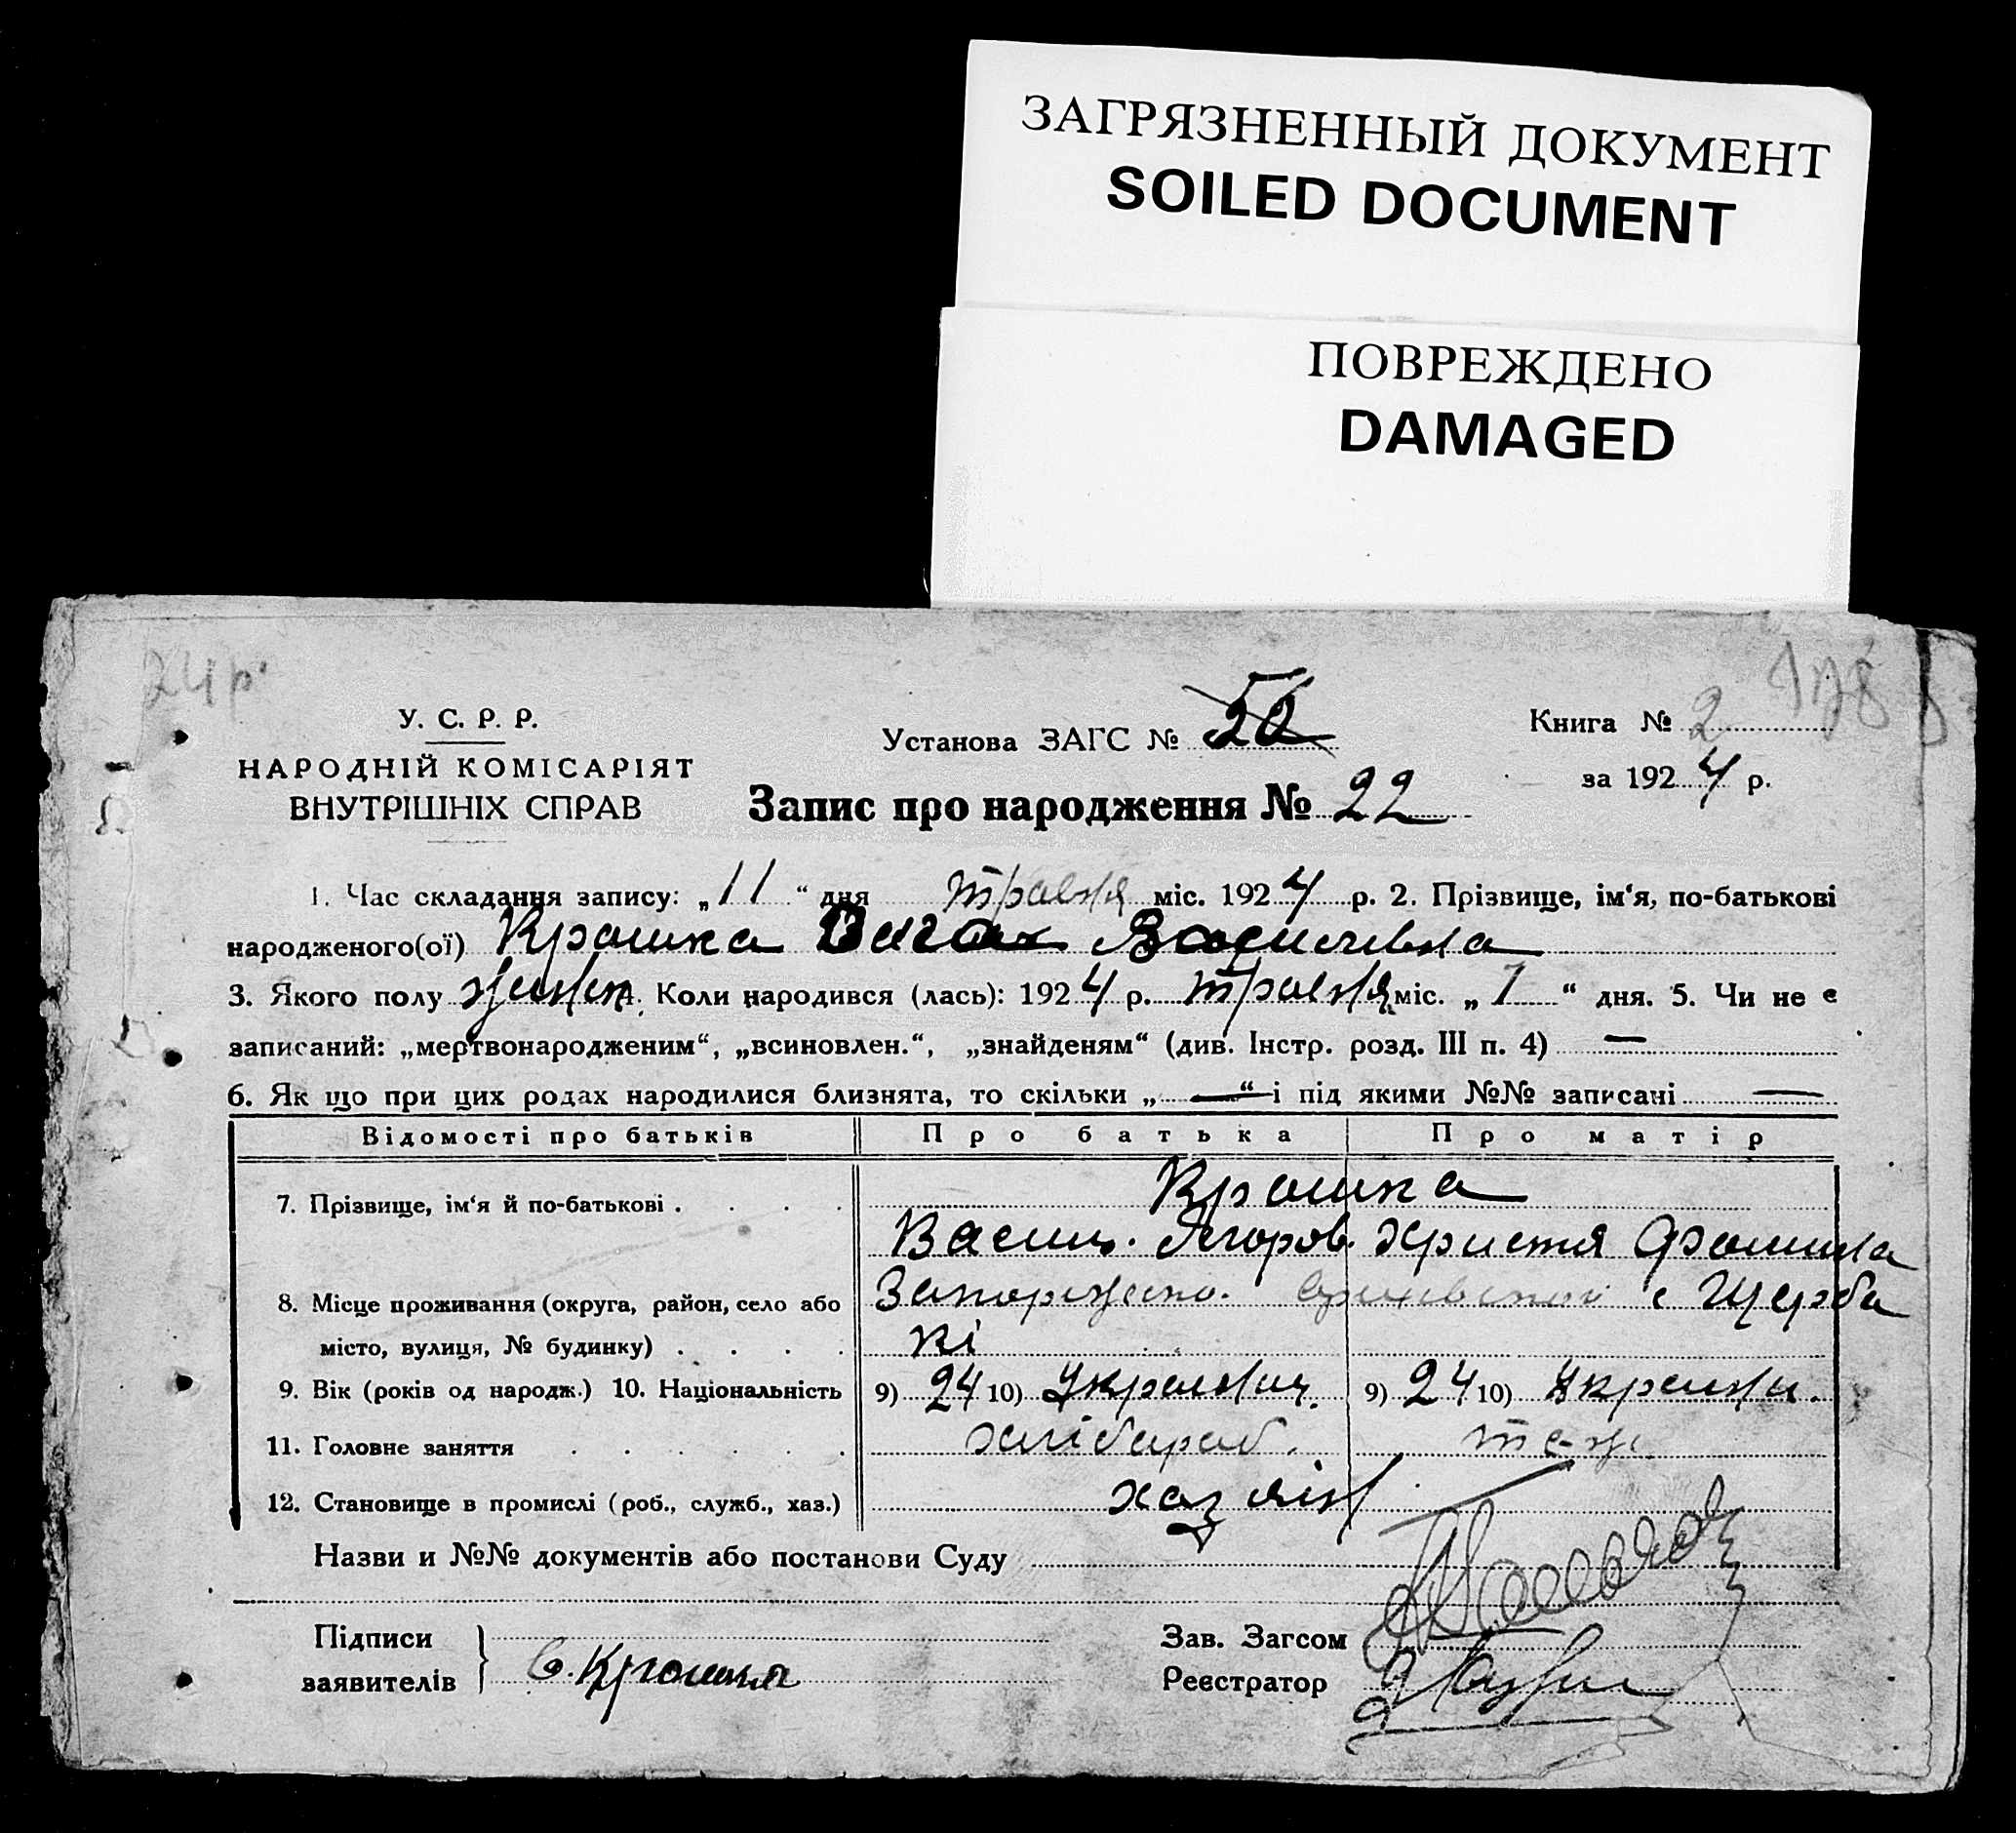 ЗАГРЯЗНЕННЫЙ ДОКУМЕНТ
SOILED DOCUMENT
ПОВРЕЖДЕНО
DAMAGED
24 р.
У. С. Р. Р.
НАРОДНІЙ КОМІСАРІЯТ
ВНУТРІШНІХ СПРАВ
Установа ЗАГС №
Книга № 2
за 1924 р.
Запис про народження № 22
1. Час складання запису: „11“ дня травня міс. 1924 р. 2. Прізвище, ім‘я, по-батькові
народженого(ої) Крошка Василевна
3. Якого полу жіноч. 4. Коли народився (лась): 1924 р. травня міс. „7“ дня. 5. Чи не є
записаний: „мертвонародженим“, „всиновлен.“, „знайденям“ (див. Інстр. розд. III п. 4) —
6. Як що при цих родах народилися близнята, то скільки „—“ і під якими №№ записані —
Відомості про батьків Про батька Про матір
7. Прізвище, ім‘я й по-батькові . . . . Крошка
Василь. Єгоров. Христя Фомина
8. Місце проживання (округа, район, село або Запоріжско. с Щерба
місто, вулиця, № будинку) . . . . кі
9. Вік (років од народж.) 10. Національність 9) 24 10) Українц. 9) 24 10) Україн.
11. Головне заняття . . . . . . хлібороб. те-ж.
12. Становище в промислі (роб., служб., хаз.) хазяін
Назви и №№ документів або постанови Суду
Підписи
заявителів
Крошка
Зав. Загсом
Реєстратор